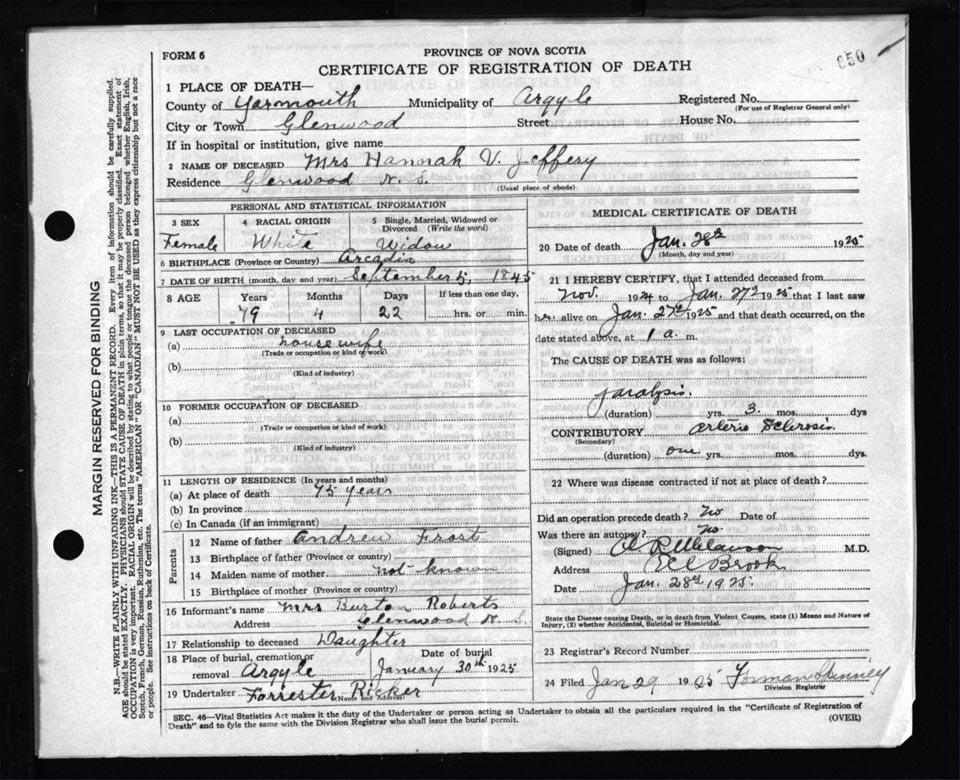 FORM 6
PROVINCE OF NOVA SCOTIA
CERTIFICATE OF REGISTRATION OF DEATH
650
1 PLACE OF DEATH—
County of Yarmouth Municipality of Argyle Registered No.
(For use of Registrar General only)
City or Town Glenwood Street House No.
If in hospital or institution, give name
2 NAME OF DECEASED Mrs Hannah V. Jeffery
Residence Glenwood N. S.
(Usual place of abode)
PERSONAL AND STATISTICAL INFORMATION
3 SEX 4 RACIAL ORIGIN 5 Single, Married, Widowed or Divorced (Write the word)
Female White Widow
6 BIRTHPLACE (Province or Country) Arcadia
7 DATE OF BIRTH (month, day and year) September 5, 1845
8 AGE Years Months Days If less than one day,
79 4 22 hrs. or min.
9 LAST OCCUPATION OF DECEASED
(a) housewife
(Trade or occupation or kind of work)
(b)
(Kind of industry)
10 FORMER OCCUPATION OF DECEASED
(a)
(Trade or occupation or kind of work)
(b)
(Kind of industry)
11 LENGTH OF RESIDENCE (In years and months)
(a) At place of death 75 years
(b) In province
(c) In Canada (if an immigrant)
Parents
12 Name of father Andrew Frost
13 Birthplace of father (Province or country)
14 Maiden name of mother not known
15 Birthplace of mother (Province or country)
16 Informant's name Mrs Burton Roberts
Address Glenwood N. S.
17 Relationship to deceased Daughter
18 Place of burial, cremation or removal Argyle Date of burial January 30th 1925
19 Undertaker Forrester Ricker
(Name and Address)
MEDICAL CERTIFICATE OF DEATH
20 Date of death Jan. 28th 1925
(Month, day and year)
21 I HEREBY CERTIFY, that I attended deceased from
Nov. 1924 to Jan. 27th 1925 that I last saw
her alive on Jan. 27th 1925 and that death occurred, on the
date stated above, at 1 a. m.
The CAUSE OF DEATH was as follows:
paralysis.
(duration) yrs. 3 mos. dys
CONTRIBUTORY arterio Sclerosis
(Secondary)
(duration) one yrs. mos. dys.
22 Where was disease contracted if not at place of death?
Did an operation precede death? no Date of
Was there an autopsy? no
(Signed) M.D.
Address Brook
Date Jan. 28th 1925.
State the Disease causing Death, or in death from Violent Causes, state (1) Means and Nature of
Injury, (2) whether Accidental, Suicidal or Homicidal.
23 Registrar's Record Number
24 Filed Jan 29 1925 Forman
Division Registrar
SEC. 46—Vital Statistics Act makes it the duty of the Undertaker or person acting as Undertaker to obtain all the particulars required in the "Certificate of Registration of
Death" and to fyle the same with the Division Registrar who shall issue the burial permit.
(OVER)
MARGIN RESERVED FOR BINDING
N.B.—WRITE PLAINLY WITH UNFADING INK—THIS IS A PERMANENT RECORD. Every item of information should be carefully supplied.
AGE should be stated EXACTLY. PHYSICIANS should STATE CAUSE OF DEATH in plain terms, so that it may be properly classified. Exact statement of
OCCUPATION is very important. RACIAL ORIGIN will be described by stating to what people or tongue the deceased person belonged whether English, Irish,
Scotch, French, German, Russian, Ruthenian, etc. The terms "AMERICAN" OR "CANADIAN" MUST NOT BE USED as they express citizenship but not a race
or people. See instructions on back of Certificate.